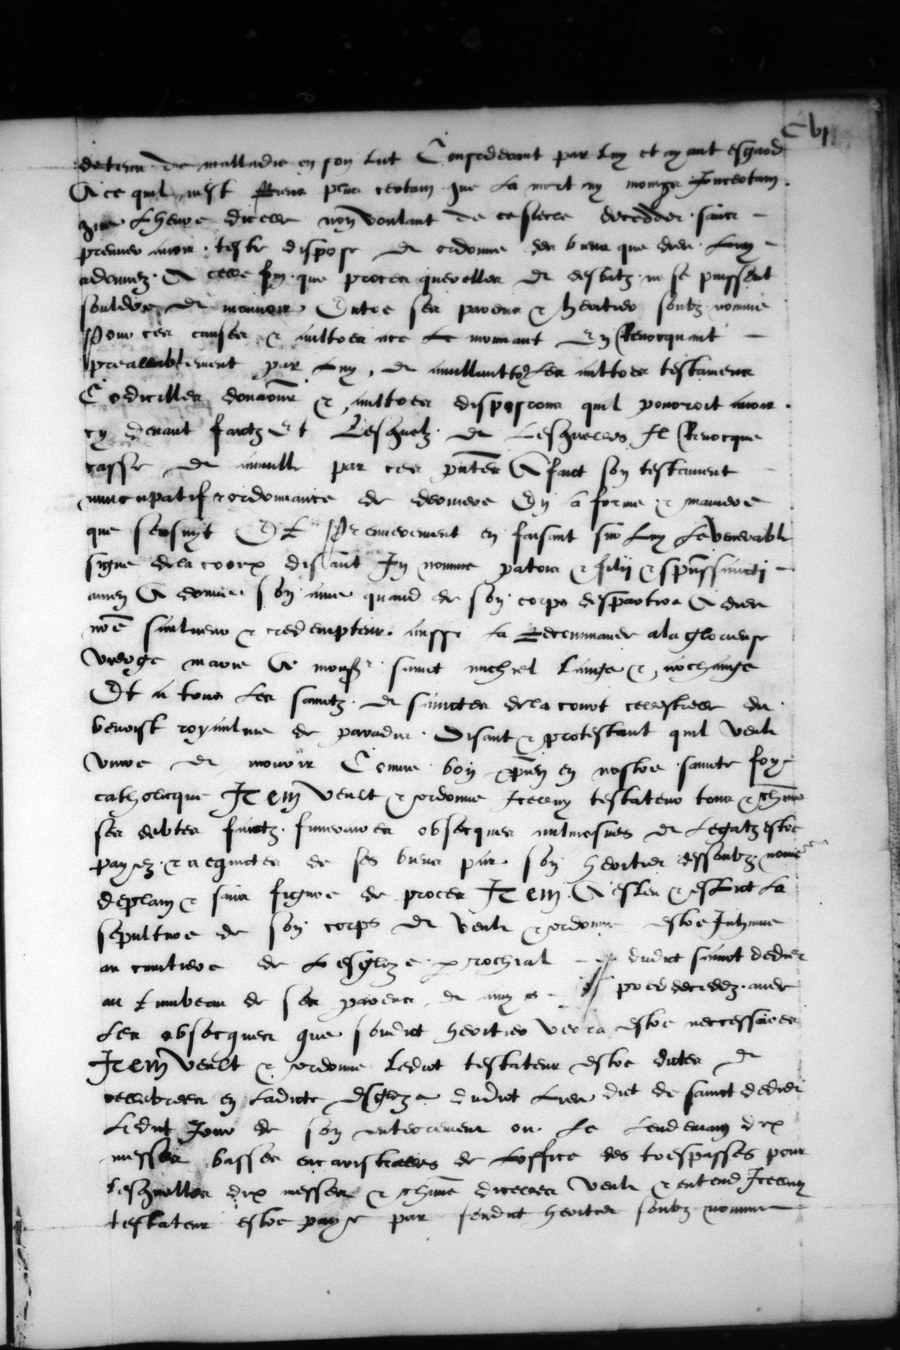 Cvj
detenu de malladie en son lict Considerant par luy et ayant esgard
A ce quil nest riens plus certain que la mort ny moings Incertain
que lheure dicelle non voulant de ce siecle decedder sans
premier avoir teste dispose et ordonne des biens que dieu luy
a donnez A celle fin que proces querelles et desbatz ne se puissent
souldre et mouvoir Entre ses parens & heritier soubz nomme
Pour ces causes & aultres ace le mouvant En Revocquant
prealablement par luy et anullant tous les aultres testamens
Codicilles donaons & aultres disposicions quil pourroit avoir
cy devant faictz Et Lesquelz et Lesquelles Il Revocque
casse et anulle par ces pntes A faict son testament
nuncupatif & ordonnance de derniere En la forme & maniere
que sensuyt Et Premierement en faisant sur luy le venerable
signe de la croix disant In nomine patris & filii & spussancti
amen A donne son ame quand de son corps despartira A dieu
nre saulveur & redempteur aussi la Recommande a la glorieuse
vierge marie A monsr sainct michiel lange & archange
Et a tous les sainctz et sainctes de la court celestielle du
benoist royaulme de paradis Disant & protestant quil veult
vivre et mourir Comme bon xpien en nostre saincte foy
catholicque Item veult & ordonne Icelluy testateur tous & chun
ses debtes faictz funeraires obsecques aulmosnes et Legatz estre
payez & acquictez de ses biens par son heritier dessoubz nomme
de plain & sans figure de proces Item A esleu & eslict la
sepulture de son corps Et veult & ordonne estre Inhume
au cimitiere de Lesglize parochial dudict sainct dedier
au tumbeau de ses parens et amys predecedez avec
Les obsecques que sondict heritier verra estre neccessaires
Item veult & ordonne Ledict testateur estre dictes et
cellebrees en Ladicte esglize dudict Lieu dict de sainct dedier
Ledict Jour de son enterrement ou le lendemain dix
messes basses encaristialles de Loffice des trespasses pour
Lesquelles dix messes & chune dicelles veult & entend Icelluy
testateur estre paye par sondict heritier soubz nomme